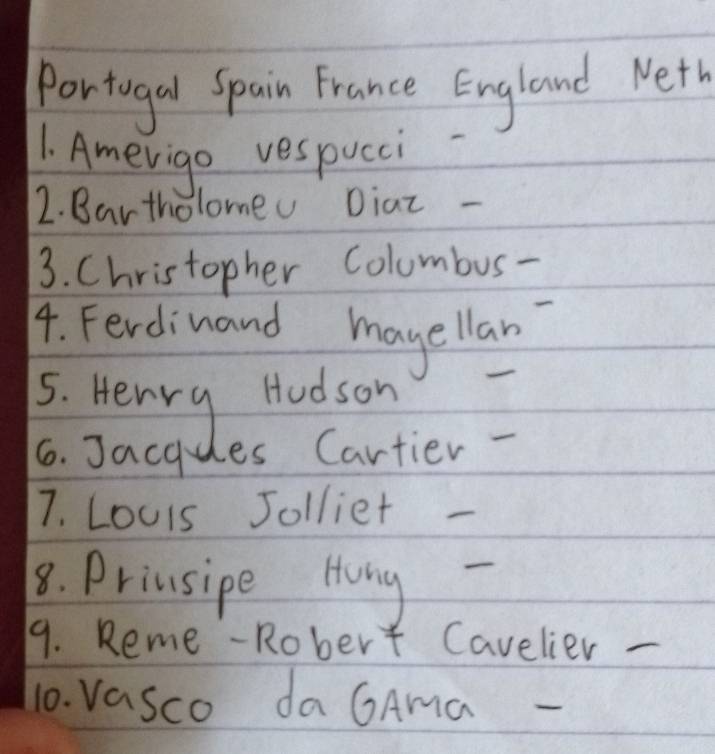 Portugal Spain France England Neth
1. Amerigo vespucci -
2. Bartholomeu Diaz -
3. Christopher Columbus -
4. Ferdinand magellan -
5. Henry Hudson -
6. Jacques Cartier -
7. Louis Jolliet -
8. Prinsipe Huny -
9. Reme - Robert Cavelier -
10. Vasco da GAma -